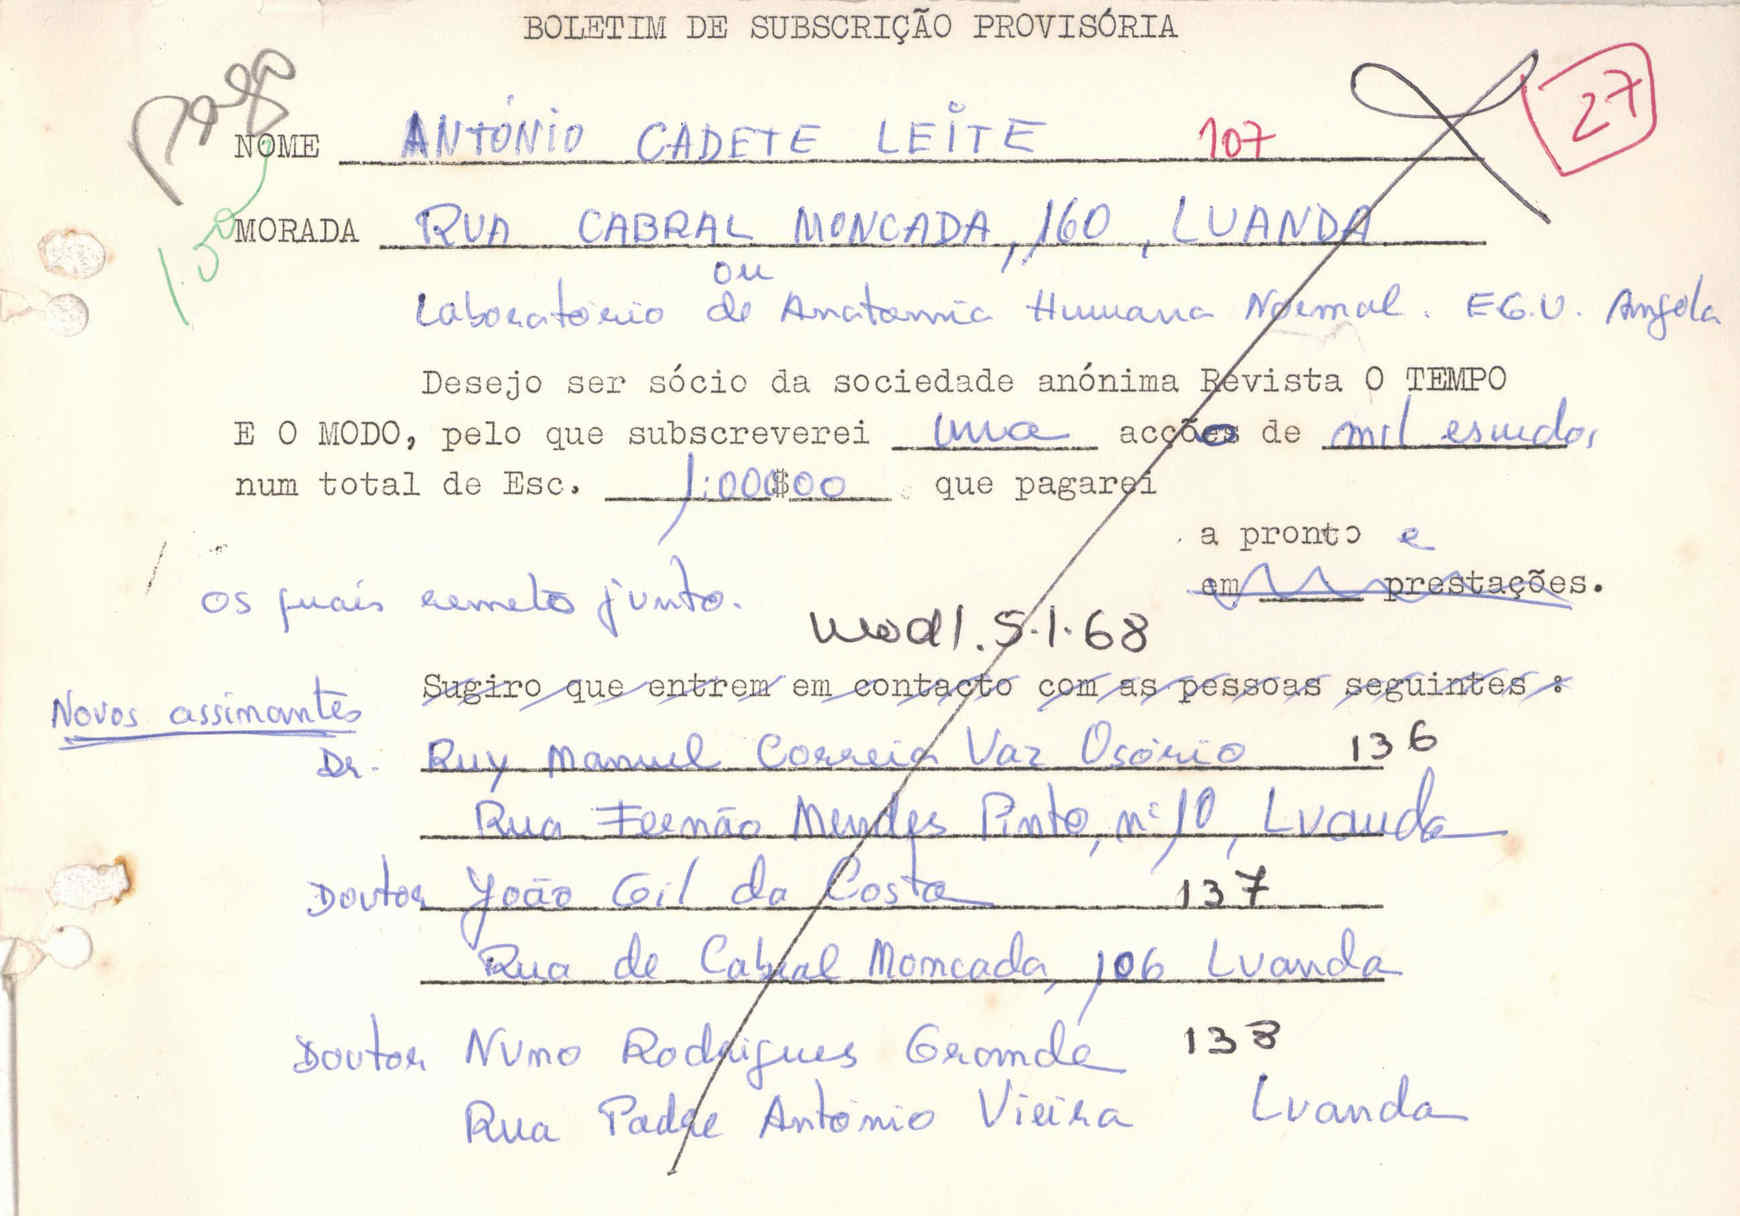 BOLETIM DE SUBSCRIÇÃO PROVISÓRIA
27
pago
NOME ANTÓNIO CADETE LEITE 107
1.50
MORADA RUA CABRAL MONCADA, 160, LUANDA
ou
Laboratório de Anatomia Humana Normal. E.G.U. Angola
Desejo ser sócio da sociedade anónima Revista O TEMPO
E O MODO, pelo que subscreverei uma acções de mil escudos,
num total de Esc. 1.000$00 que pagarei
a pronto e
em prestações.
os quais remeto junto.
5-1-68
Sugiro que entrem em contacto com as pessoas seguintes :
Novos assinantes
Dr. Ruy Manuel Correia Vaz Osório 136
Rua Fernão Mendes Pinto, nº 10, Luanda
Doutor João Gil da Costa 137
Rua de Cabral Moncada, 106 Luanda
Doutor Nuno Rodrigues Grande 138
Rua Padre António Vieira Luanda